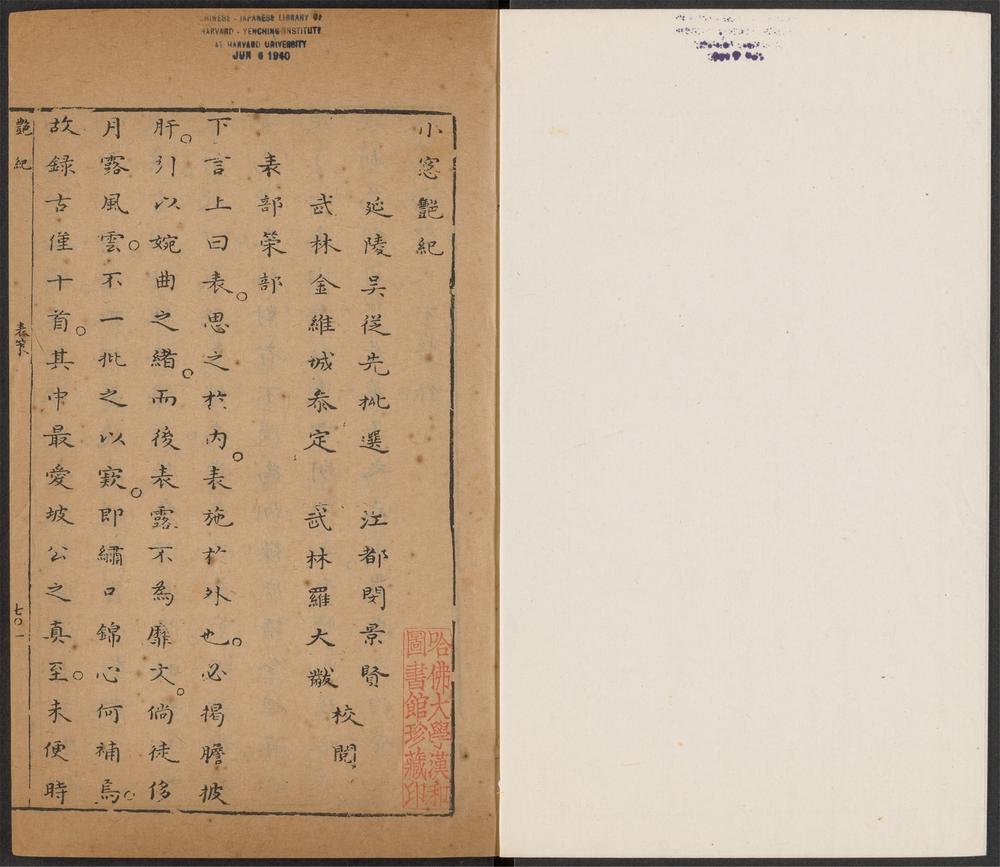 CHINESE - JAPANESE LIBRARY OF
HARVARD - YENCHING INSTITUTE
AT HARVARD UNIVERSITY
JUN 6 1940
小窓艷紀
延陵吳從先批選 江都閔景賢
武林金維城叅定 武林羅大黻
校閱
表部策部
下言上曰表。思之於內。表施於外也。必揭膽披
肝。引以婉曲之緒。而後表露不為靡文。倘徒侈
月露風雲。不一批之以窾。即繡口錦心何補焉。
故錄古僅十首。其中最愛坡公之真至。未便時
艷紀
表策
七〇一
哈佛大學漢和
圖書館珍藏印